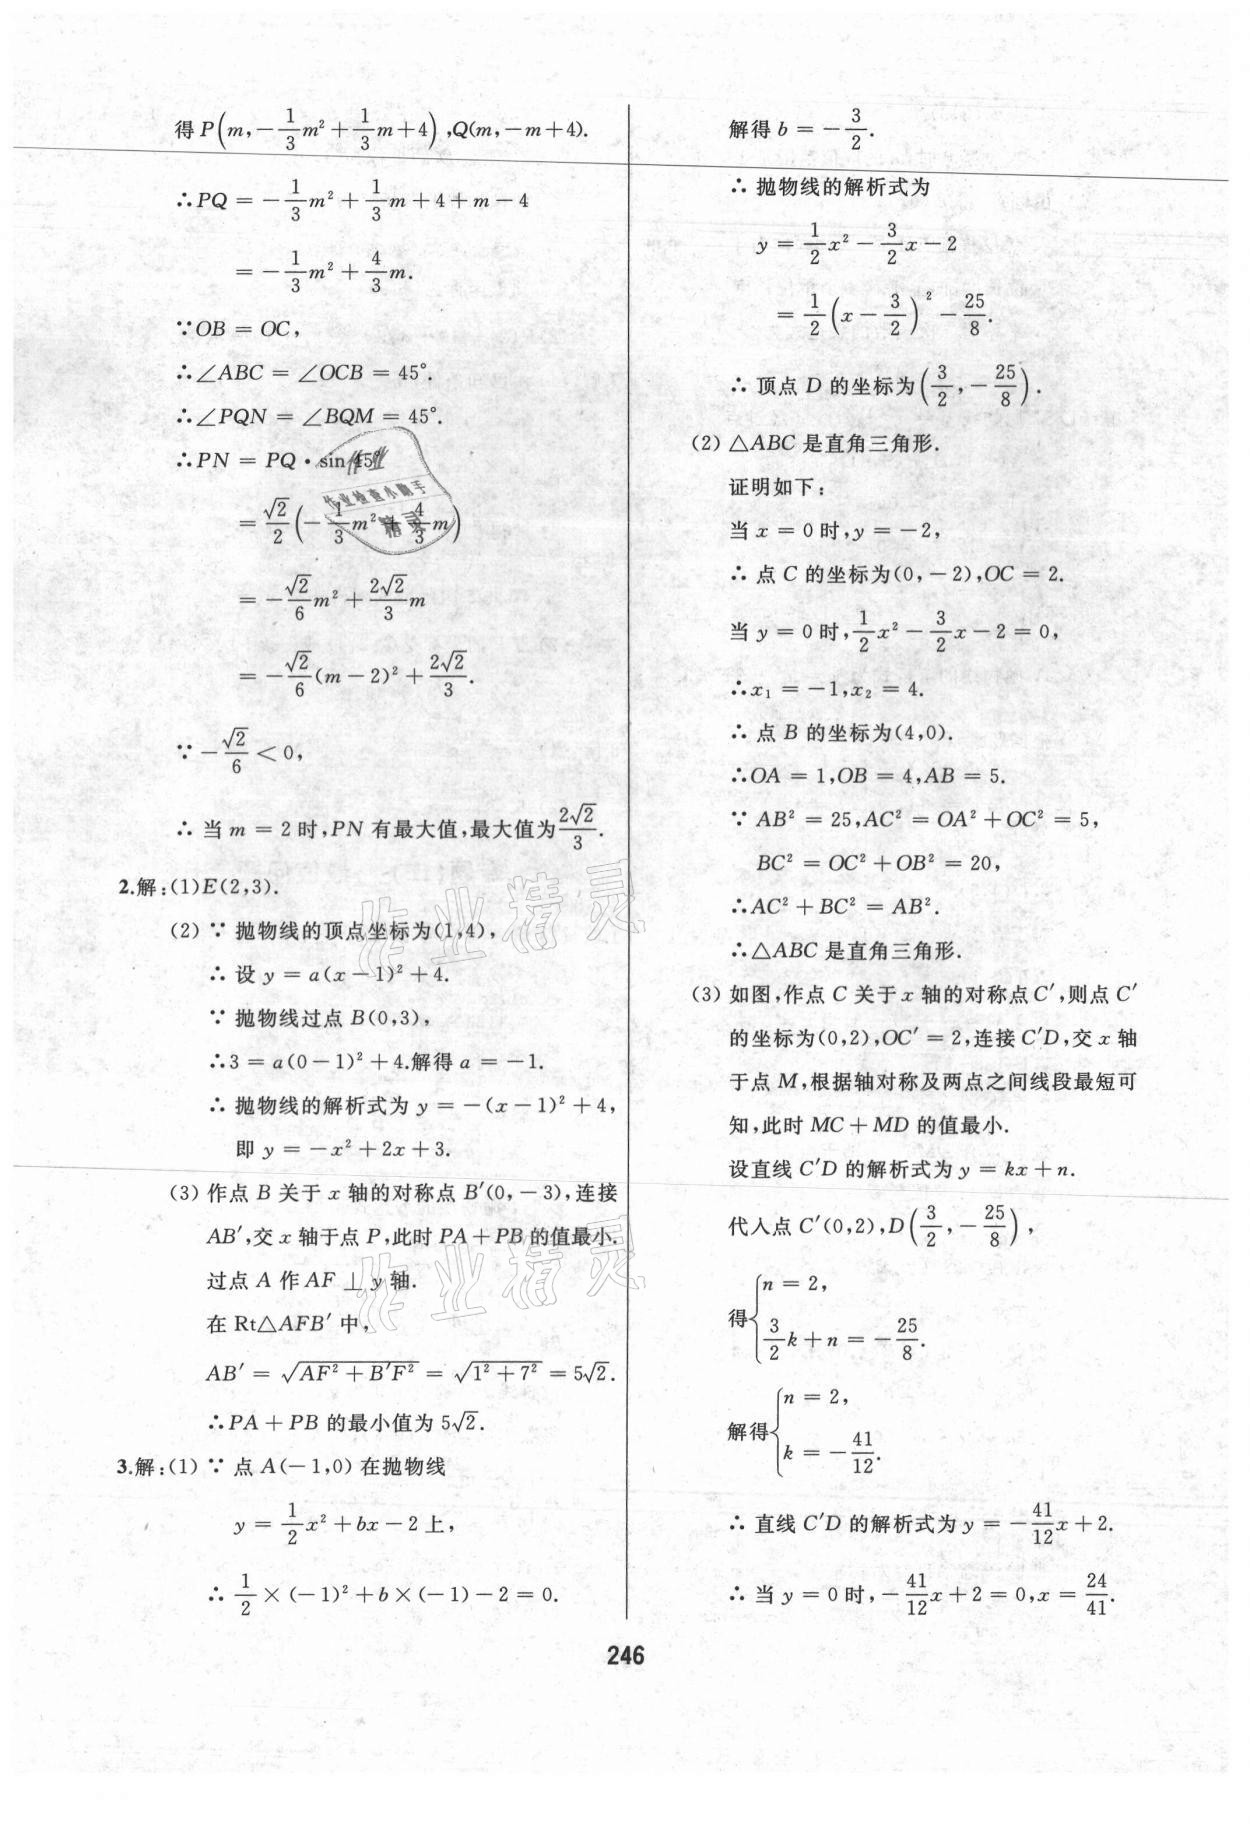 得P(m,-1/3m²+1/3m+4),Q(m,-m+4).
∴PQ=-1/3m²+1/3m+4+m-4
=-1/3m²+4/3m.
∵OB=OC,
∴∠ABC=∠OCB=45°.
∴∠PQN=∠BQM=45°.
∴PN=PQ·sin 45°
=√2/2(-1/3m²+4/3m)
=-√2/6m²+2√2/3m
=-√2/6(m-2)²+2√2/3.
∵-√2/6<0,
∴当m=2时,PN有最大值,最大值为2√2/3.
2.解:(1)E(2,3).
(2)∵抛物线的顶点坐标为(1,4),
∴设y=a(x-1)²+4.
∵抛物线过点B(0,3),
∴3=a(0-1)²+4.解得a=-1.
∴抛物线的解析式为y=-(x-1)²+4,
即y=-x²+2x+3.
(3)作点B关于x轴的对称点B′(0,-3),连接
AB′,交x轴于点P,此时PA+PB的值最小.
过点A作AF⊥y轴.
在Rt△AFB′中,
AB′=√(AF²+B′F²)=√(1²+7²)=5√2.
∴PA+PB的最小值为5√2.
3.解:(1)∵点A(-1,0)在抛物线
y=1/2x²+bx-2上,
∴1/2×(-1)²+b×(-1)-2=0.
解得b=-3/2.
∴抛物线的解析式为
y=1/2x²-3/2x-2
=1/2(x-3/2)²-25/8.
∴顶点D的坐标为(3/2,-25/8).
(2)△ABC是直角三角形.
证明如下:
当x=0时,y=-2,
∴点C的坐标为(0,-2),OC=2.
当y=0时,1/2x²-3/2x-2=0,
∴x₁=-1,x₂=4.
∴点B的坐标为(4,0).
∴OA=1,OB=4,AB=5.
∵AB²=25,AC²=OA²+OC²=5,
BC²=OC²+OB²=20,
∴AC²+BC²=AB².
∴△ABC是直角三角形.
(3)如图,作点C关于x轴的对称点C′,则点C′
的坐标为(0,2),OC′=2,连接C′D,交x轴
于点M,根据轴对称及两点之间线段最短可
知,此时MC+MD的值最小.
设直线C′D的解析式为y=kx+n.
代入点C′(0,2),D(3/2,-25/8),
得{n=2,
3/2k+n=-25/8.
解得{n=2,
k=-41/12.
∴直线C′D的解析式为y=-41/12x+2.
∴当y=0时,-41/12x+2=0,x=24/41.
246
作业
作业检查小助手
精灵
作业精灵
作业精灵